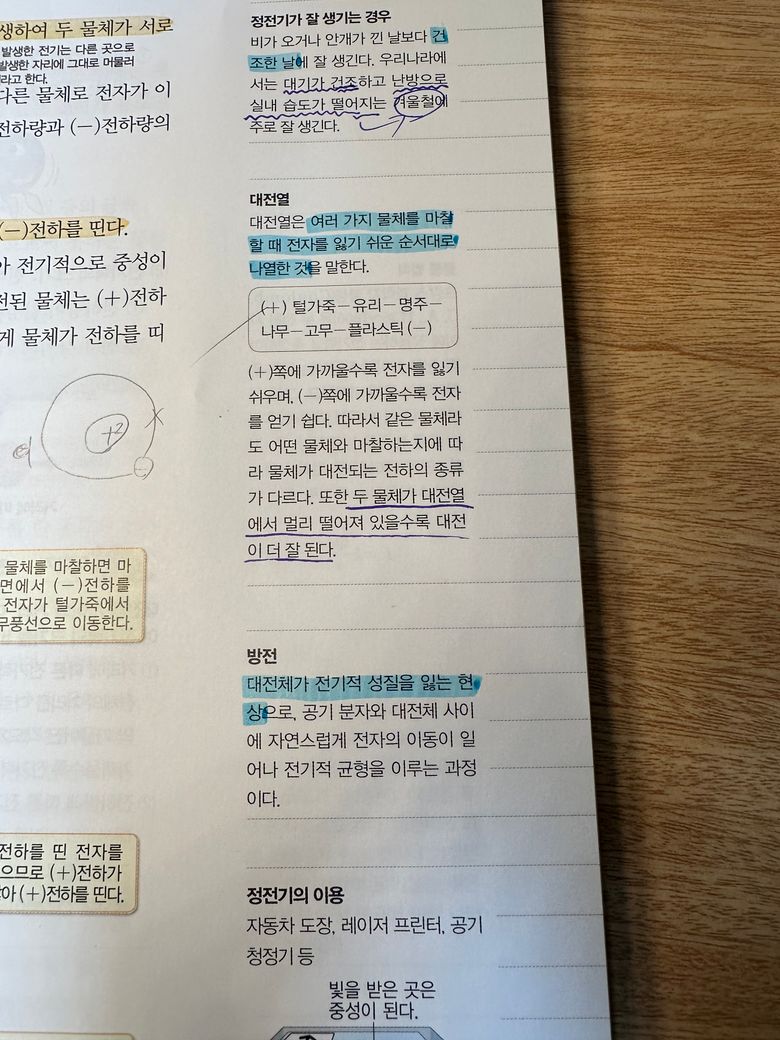 생하여 두 물체가 서로
발생한 전기는 다른 곳으로
발생한 자리에 그대로 머물러
라고 한다.
다른 물체로 전자가 이
전하량과 (－)전하량의
(－)전하를 띤다.
아 전기적으로 중성이
전된 물체는 (＋)전하
게 물체가 전하를 띠
+2
－
물체를 마찰하면 마
면에서 (－)전하를
전자가 털가죽에서
무풍선으로 이동한다.
전하를 띤 전자를
으므로 (＋)전하가
아 (＋)전하를 띤다.
정전기가 잘 생기는 경우
비가 오거나 안개가 낀 날보다 건
조한 날에 잘 생긴다. 우리나라에
서는 대기가 건조하고 난방으로
실내 습도가 떨어지는 겨울철에
주로 잘 생긴다.
대전열
대전열은 여러 가지 물체를 마찰
할 때 전자를 잃기 쉬운 순서대로
나열한 것을 말한다.
(＋) 털가죽－유리－명주－
나무－고무－플라스틱 (－)
(＋)쪽에 가까울수록 전자를 잃기
쉬우며, (－)쪽에 가까울수록 전자
를 얻기 쉽다. 따라서 같은 물체라
도 어떤 물체와 마찰하는지에 따
라 물체가 대전되는 전하의 종류
가 다르다. 또한 두 물체가 대전열
에서 멀리 떨어져 있을수록 대전
이 더 잘 된다.
방전
대전체가 전기적 성질을 잃는 현
상으로, 공기 분자와 대전체 사이
에 자연스럽게 전자의 이동이 일
어나 전기적 균형을 이루는 과정
이다.
정전기의 이용
자동차 도장, 레이저 프린터, 공기
청정기 등
빛을 받은 곳은
중성이 된다.